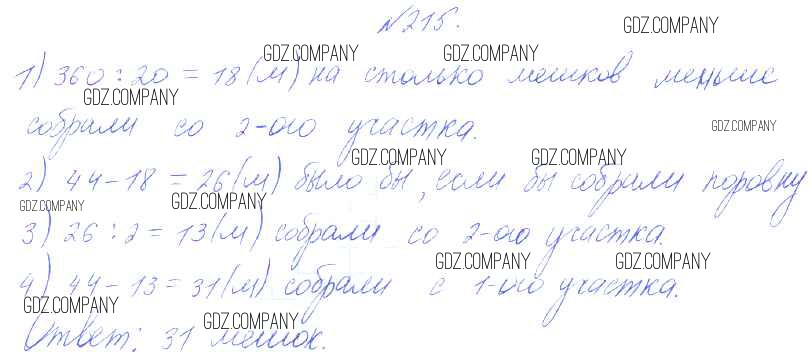 №215.
GDZ.COMPANY
GDZ.COMPANY GDZ.COMPANY
1) 360 : 20 = 18 (м) на столько мешков меньше
GDZ.COMPANY
собрали со 2-ого участка.
GDZ.COMPANY
GDZ.COMPANY GDZ.COMPANY
2) 44 - 18 = 26 (м) было бы, если бы собрали поровну
GDZ.COMPANY GDZ.COMPANY
3) 26 : 2 = 13 (м) собрали со 2-ого участка.
GDZ.COMPANY GDZ.COMPANY
4) 44 - 13 = 31 (м) собрали с 1-ого участка.
GDZ.COMPANY GDZ.COMPANY
Ответ: 31 мешок.